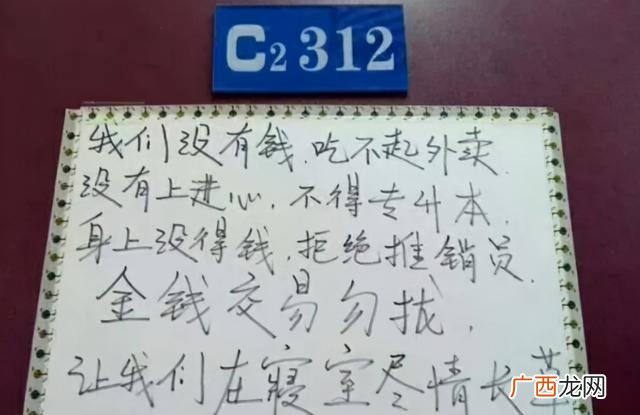 C2312
我们没有钱.吃不起外卖.
没有上进心,不得专升本.
身上没得钱,拒绝推销员.
金钱交易勿拢,
让我们在寝室尽情长
广西龙网